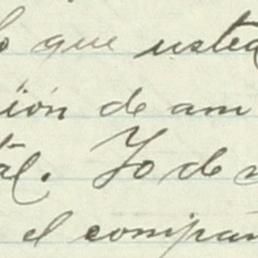 lo que usted
ión de am
tal. Yo de
el compañ